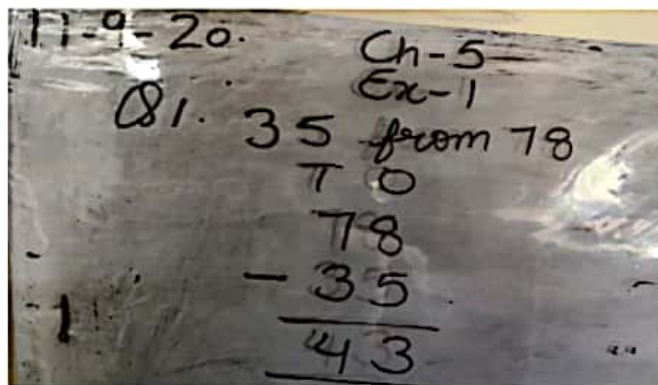 11-9-20.
Ch-5
Ex-1
Q1. 35 from 78
T O
78
- 35
43